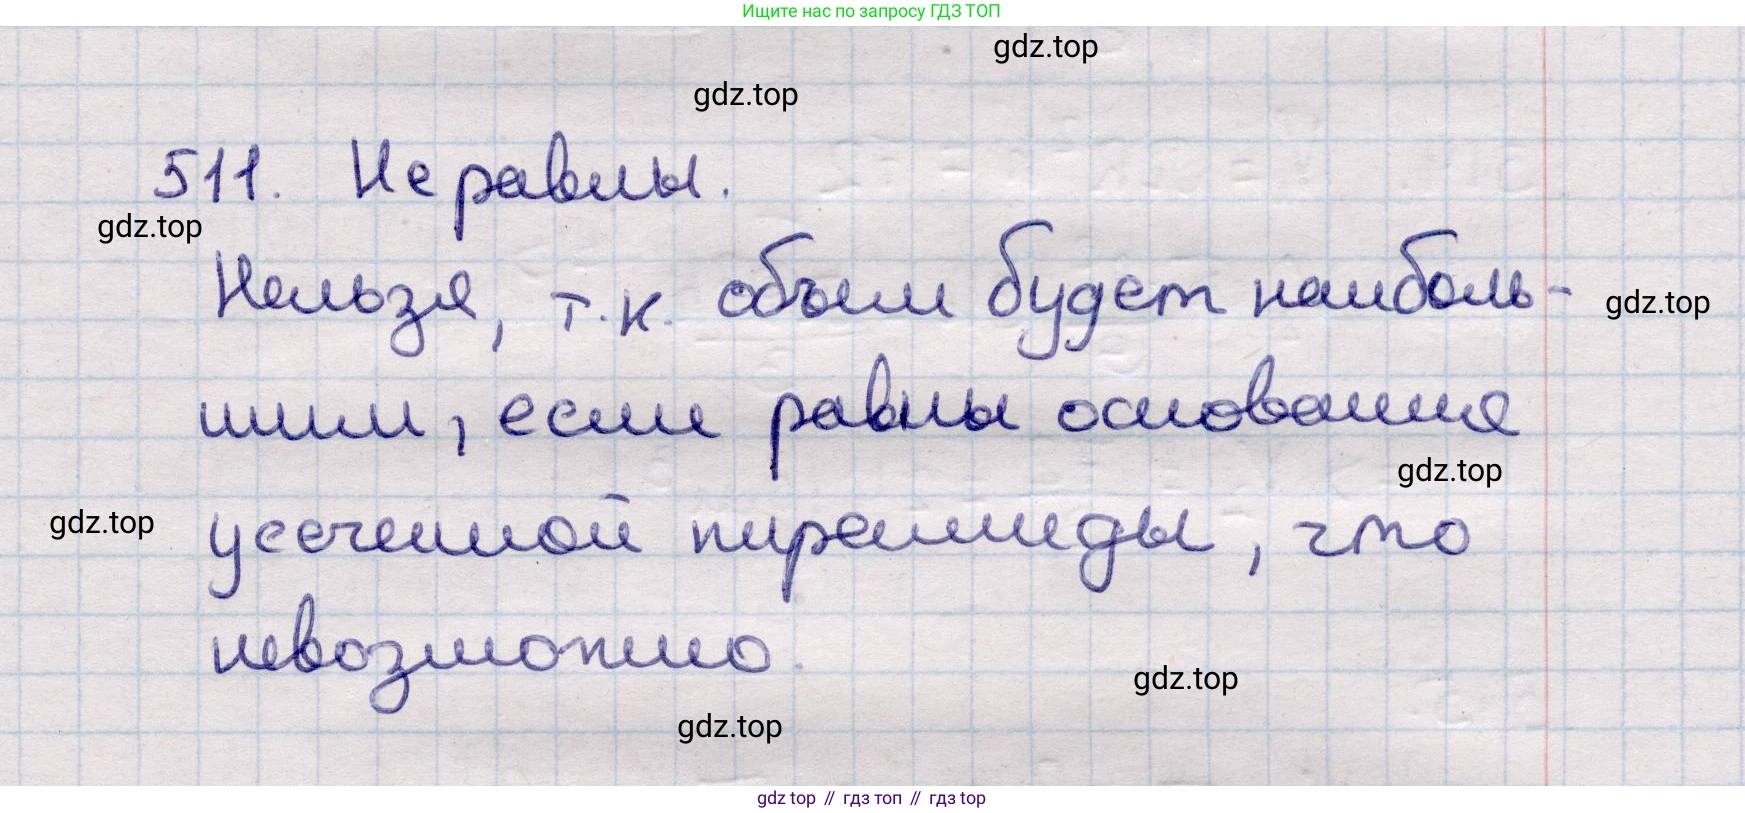 Ищите нас по запросу ГДЗ ТОП
gdz.top
gdz.top
511. Не равны.
gdz.top
Нельзя, т.к. объем будет наиболь-
gdz.top
шим, если равны основания
gdz.top
gdz.top
усеченной пирамиды, что
невозможно.
gdz.top
gdz.top
gdz top // гдз топ // gdz top